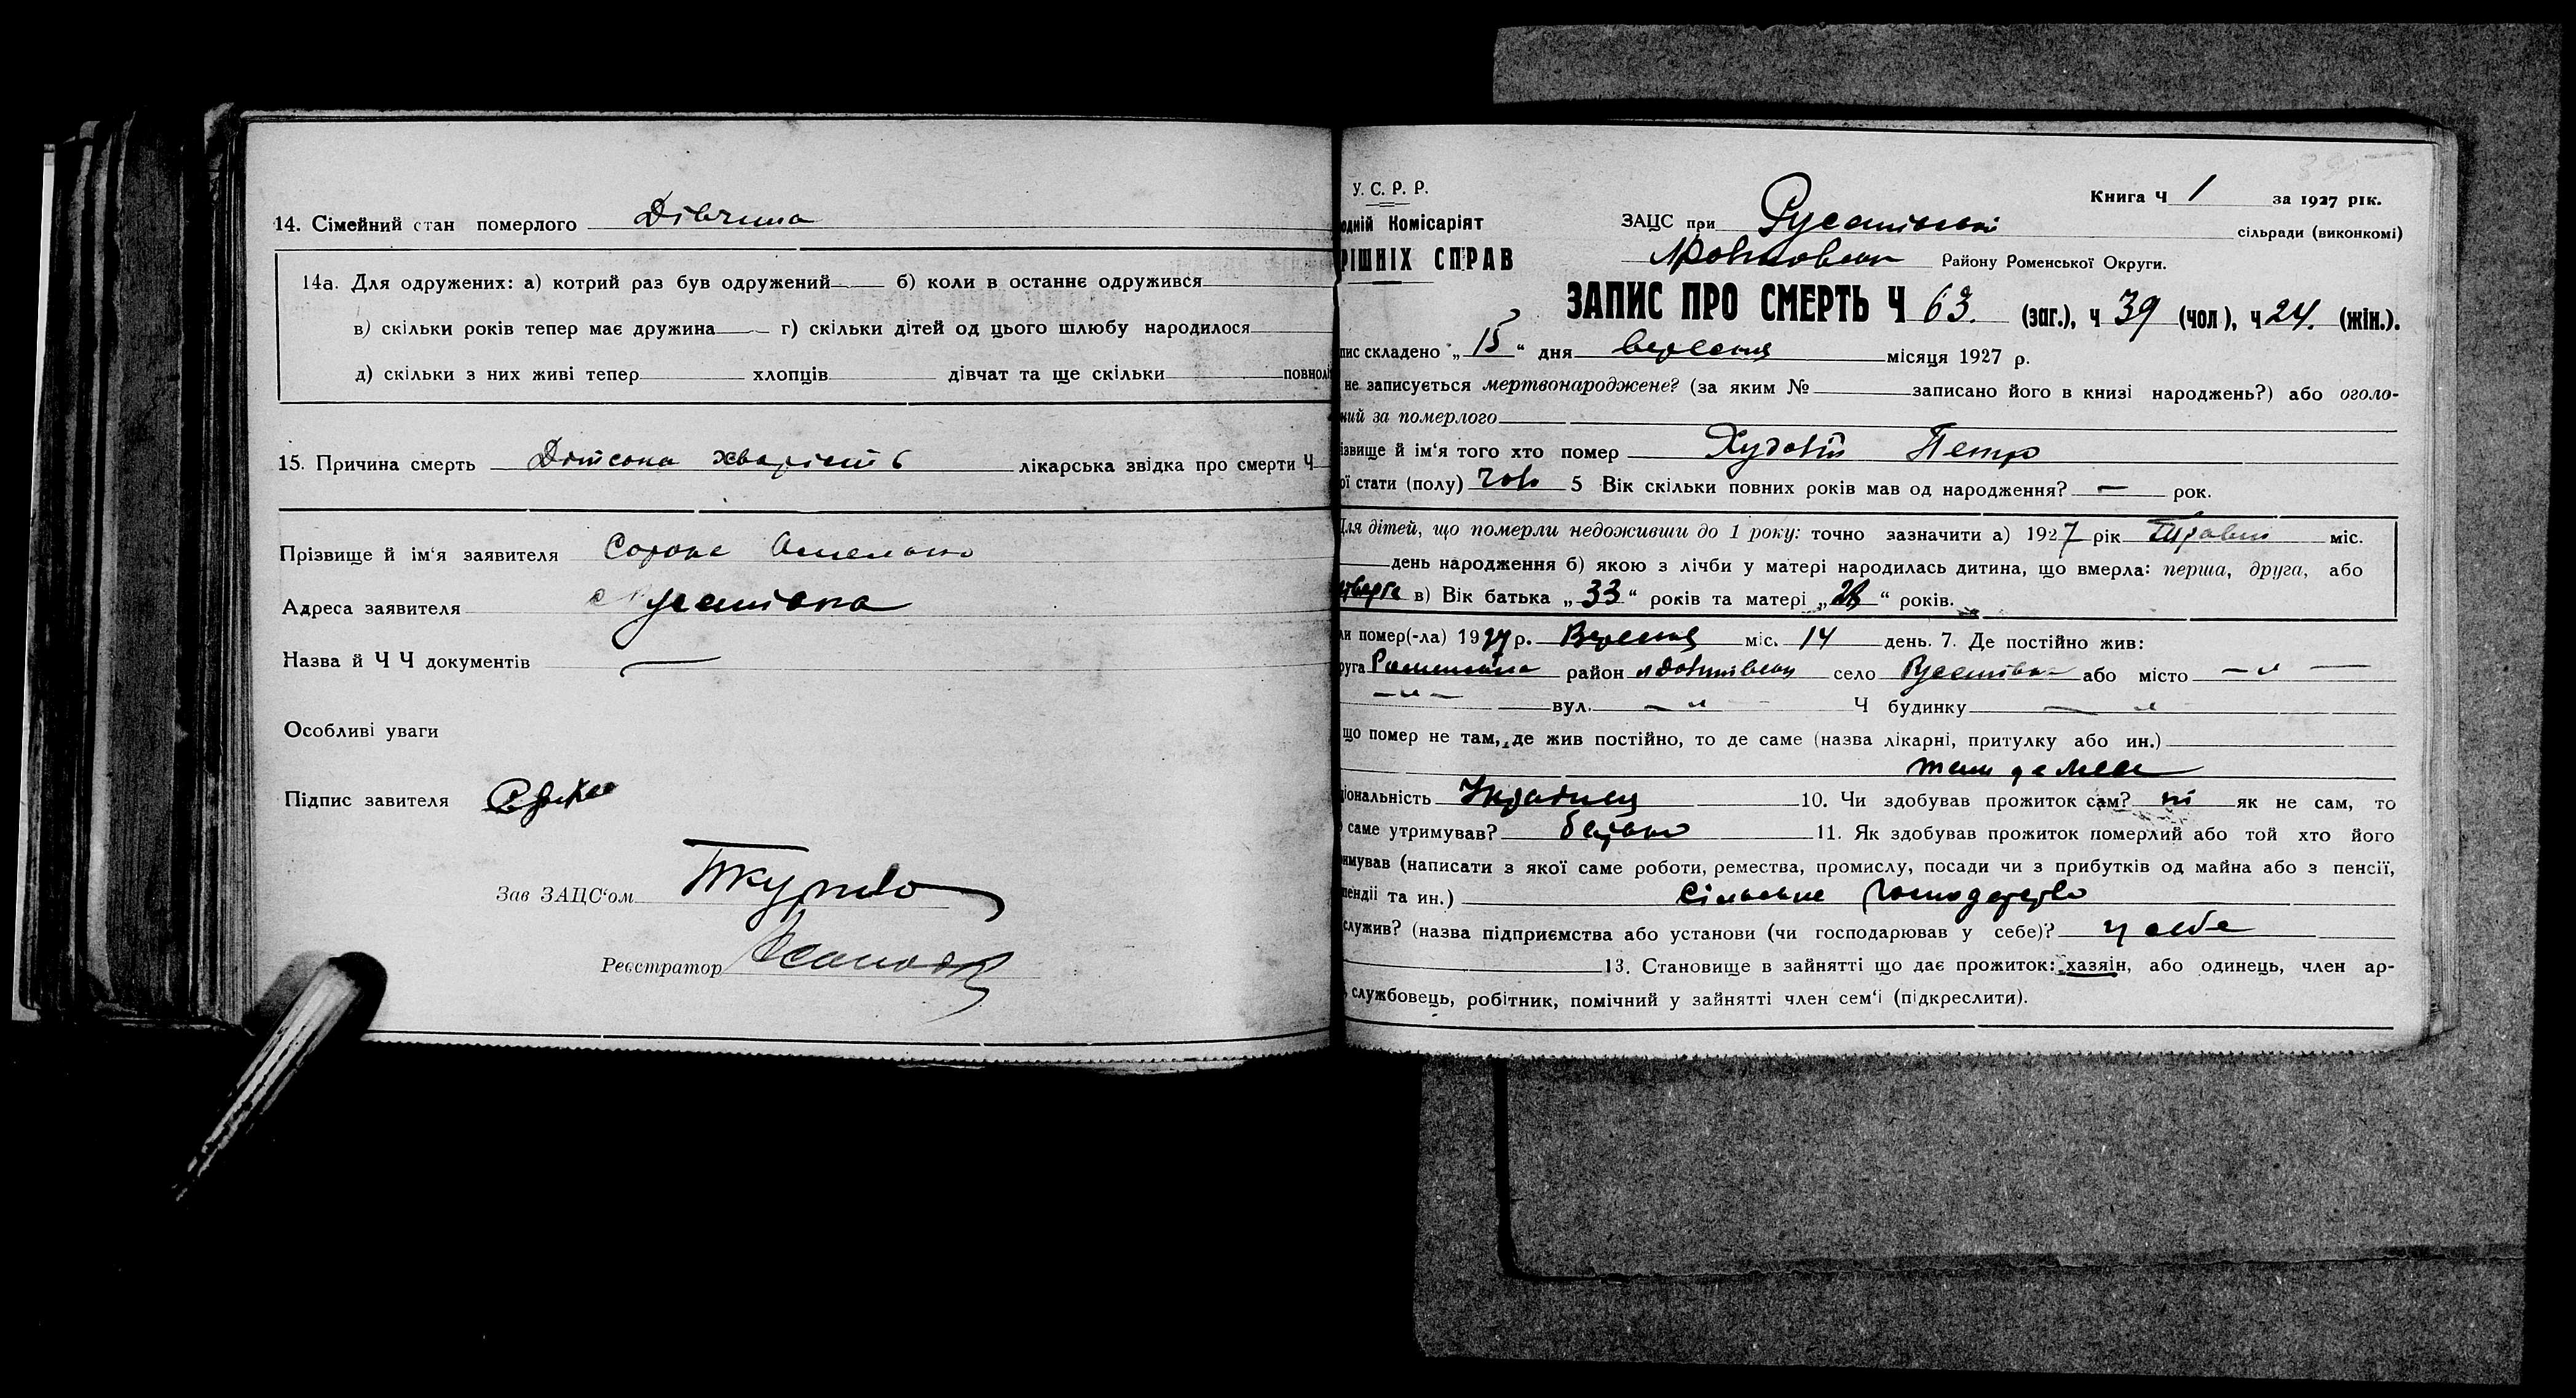 14. Сімейний стан померлого Дівчина
14а. Для одружених: а) котрий раз був одружений б) коли в останнє одружився
в) скільки років тепер має дружина г) скільки дітей од цього шлюбу народилося
д) скільки з них живі тепер хлопців дівчат та ще скільки повнолі
15. Причина смерть Дітсока хварість лікарська звідка про смерти Ч
Прізвище й ім'я заявителя Сорока Омелько
Адреса заявителя с Русанівка
Назва й Ч Ч документів
Особливі уваги
Підпис завителя
Зав ЗАЦС'ом
Реєстратор
У. С. Р. Р.
одній Комісаріят
РІШНІХ СПРАВ
Книга Ч 1 за 1927 рік.
ЗАЦС при Русанівській сільради (виконкомі)
Району Роменської Округи.
ЗАПИС ПРО СМЕРТЬ Ч 63. (заг.), ч 39 (чол), ч 24. (жін.).
пис складено „15" дня вересня місяця 1927 р.
не записується мертвонароджене? (за яким № записано його в книзі народжень?) або оголо-
ний за померлого
ізвище й ім'я того хто помер Худовій Петро
ої стати (полу) чоло 5 Вік скільки повних років мав од народження? — рок.
Для дітей, що померли недоживши до 1 року: точно зазначити а) 1927 рік Травня міс.
день народження б) якою з лічби у матері народилась дитина, що вмерла: перша, друга, або
в) Вік батька „33" років та матері „28" років.
ли помер(-ла) 1927 р. Вересня міс. 14 день. 7. Де постійно жив:
руга Роменська район село Русанівка або місто — „ —
— „ — вул. — „ Ч будинку — „
що помер не там, де жив постійно, то де саме (назва лікарні, притулку або ин.)
там де жив
іональність Українець 10. Чи здобував прожиток сам? ні як не сам, то
саме утримував? батько 11. Як здобував прожиток померлий або той хто його
имував (написати з якої саме роботи, ремества, промислу, посади чи з прибутків од майна або з пенсії,
пендії та ин.) сільське господарство
служив? (назва підприємства або установи (чи господарював у себе)? у себе
13. Становище в зайнятті що дає прожиток: хазяїн, або одинець, член ар-
службовець, робітник, помічний у зайнятті член сем'ї (підкреслити).